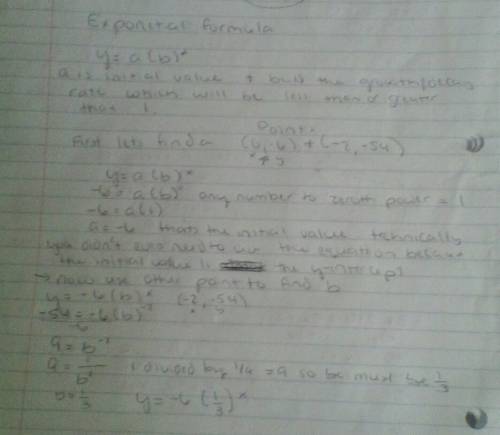 Exponital formula
y = a(b)^x
a is initial value + b is the growth/decay
rate which will be less than or greater
than 1.
Points
First lets find a (0,-6) + (-2,-54)
x y
y = a(b)^x
-6 = a(b)^0 any number to zeroth power = 1
-6 = a(1)
a = -6 thats the initial value technically
you didn't even need to use the equation because
the initial value is the y-intercept
→ now use other point to find b
y = -6(b)^x (-2,-54)
-54 = -6(b)^-2
-6
9 = b^-2
9 = 1/b^2 1 divided by 1/9 = 9 so be must be 1/3
b = 1/3 y = -6(1/3)^x